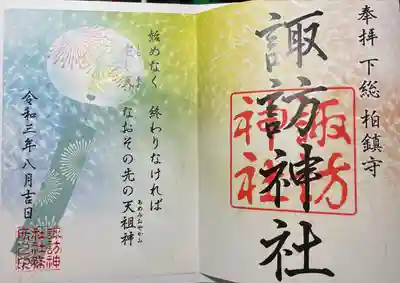 奉拝 下総 柏鎮守
諏訪神社
諏訪
神社
始めなく 終わりなければ
なおその先の天祖神
あめみおやかみ
令和三年八月吉日
諏訪神
社社務
所之印